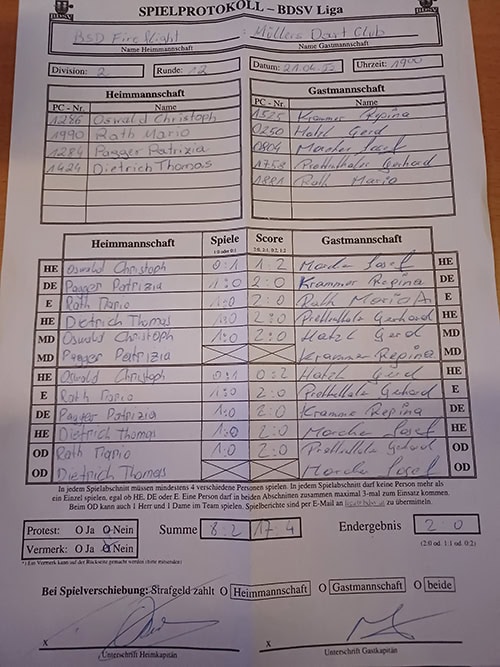 BDSV
SPIELPROTOKOLL – BDSV Liga
BDSV
BSD Fire Flight : Müllers Dart Club
Name Heimmannschaft Name Gastmannschaft
Division: 2 Runde: 12 Datum: 21.04. Uhrzeit: 1900
Heimmannschaft Gastmannschaft
PC - Nr. Name PC - Nr. Name
1286 Oswald Christoph 1525 Krammer Regina
1990 Rath Mario 0250 Hatzl Gerd
1284 Pagger Patrizia 0804 Josef
1424 Dietrich Thomas 1758 Gerhard
1881 Rath Mario
Heimmannschaft Spiele Score Gastmannschaft
1:0 oder 0:1 2:0, 2:1, 0:2, 1:2
HE Oswald Christoph 0:1 1:2 Josef HE
DE Pagger Patrizia 1:0 2:0 Krammer Regina DE
E Rath Mario 1:0 2:0 Rath Mario A. E
HE Dietrich Thomas 1:0 2:0 Gerhard HE
MD Oswald Christoph 1:0 2:0 Hatzl Gerd MD
MD Pagger Patrizia Krammer Regina MD
HE Oswald Christoph 0:1 0:2 Hatzl Gerd HE
E Rath Mario 1:0 2:0 Gerhard E
DE Pagger Patrizia 1:0 2:0 Krammer Regina DE
HE Dietrich Thomas 1:0 2:0 Josef HE
OD Rath Mario 1:0 2:0 Gerhard OD
OD Dietrich Thomas Josef OD
In jedem Spielabschnitt müssen mindestens 4 verschiedene Personen spielen. In jedem Spielabschnitt darf keine Person mehr als
ein Einzel spielen, egal ob HE, DE oder E. Eine Person darf in beiden Abschnitten zusammen maximal 3-mal zum Einsatz kommen.
Beim OD kann auch 1 Herr und 1 Dame im Team spielen. Spielberichte sind per E-Mail an zu übermitteln.
Protest: O Ja O Nein Summe 8:2 17:4 Endergebnis 2:0
Vermerk: O Ja O Nein (2:0 od. 1:1 od. 0:2)
*) Ein Vermerk kann auf der Rückseite gemacht werden (bitte mitsenden)
Bei Spielverschiebung: Strafgeld zahlt O Heimmannschaft O Gastmannschaft O beide
x x
Unterschrift Heimkapitän Unterschrift Gastkapitän